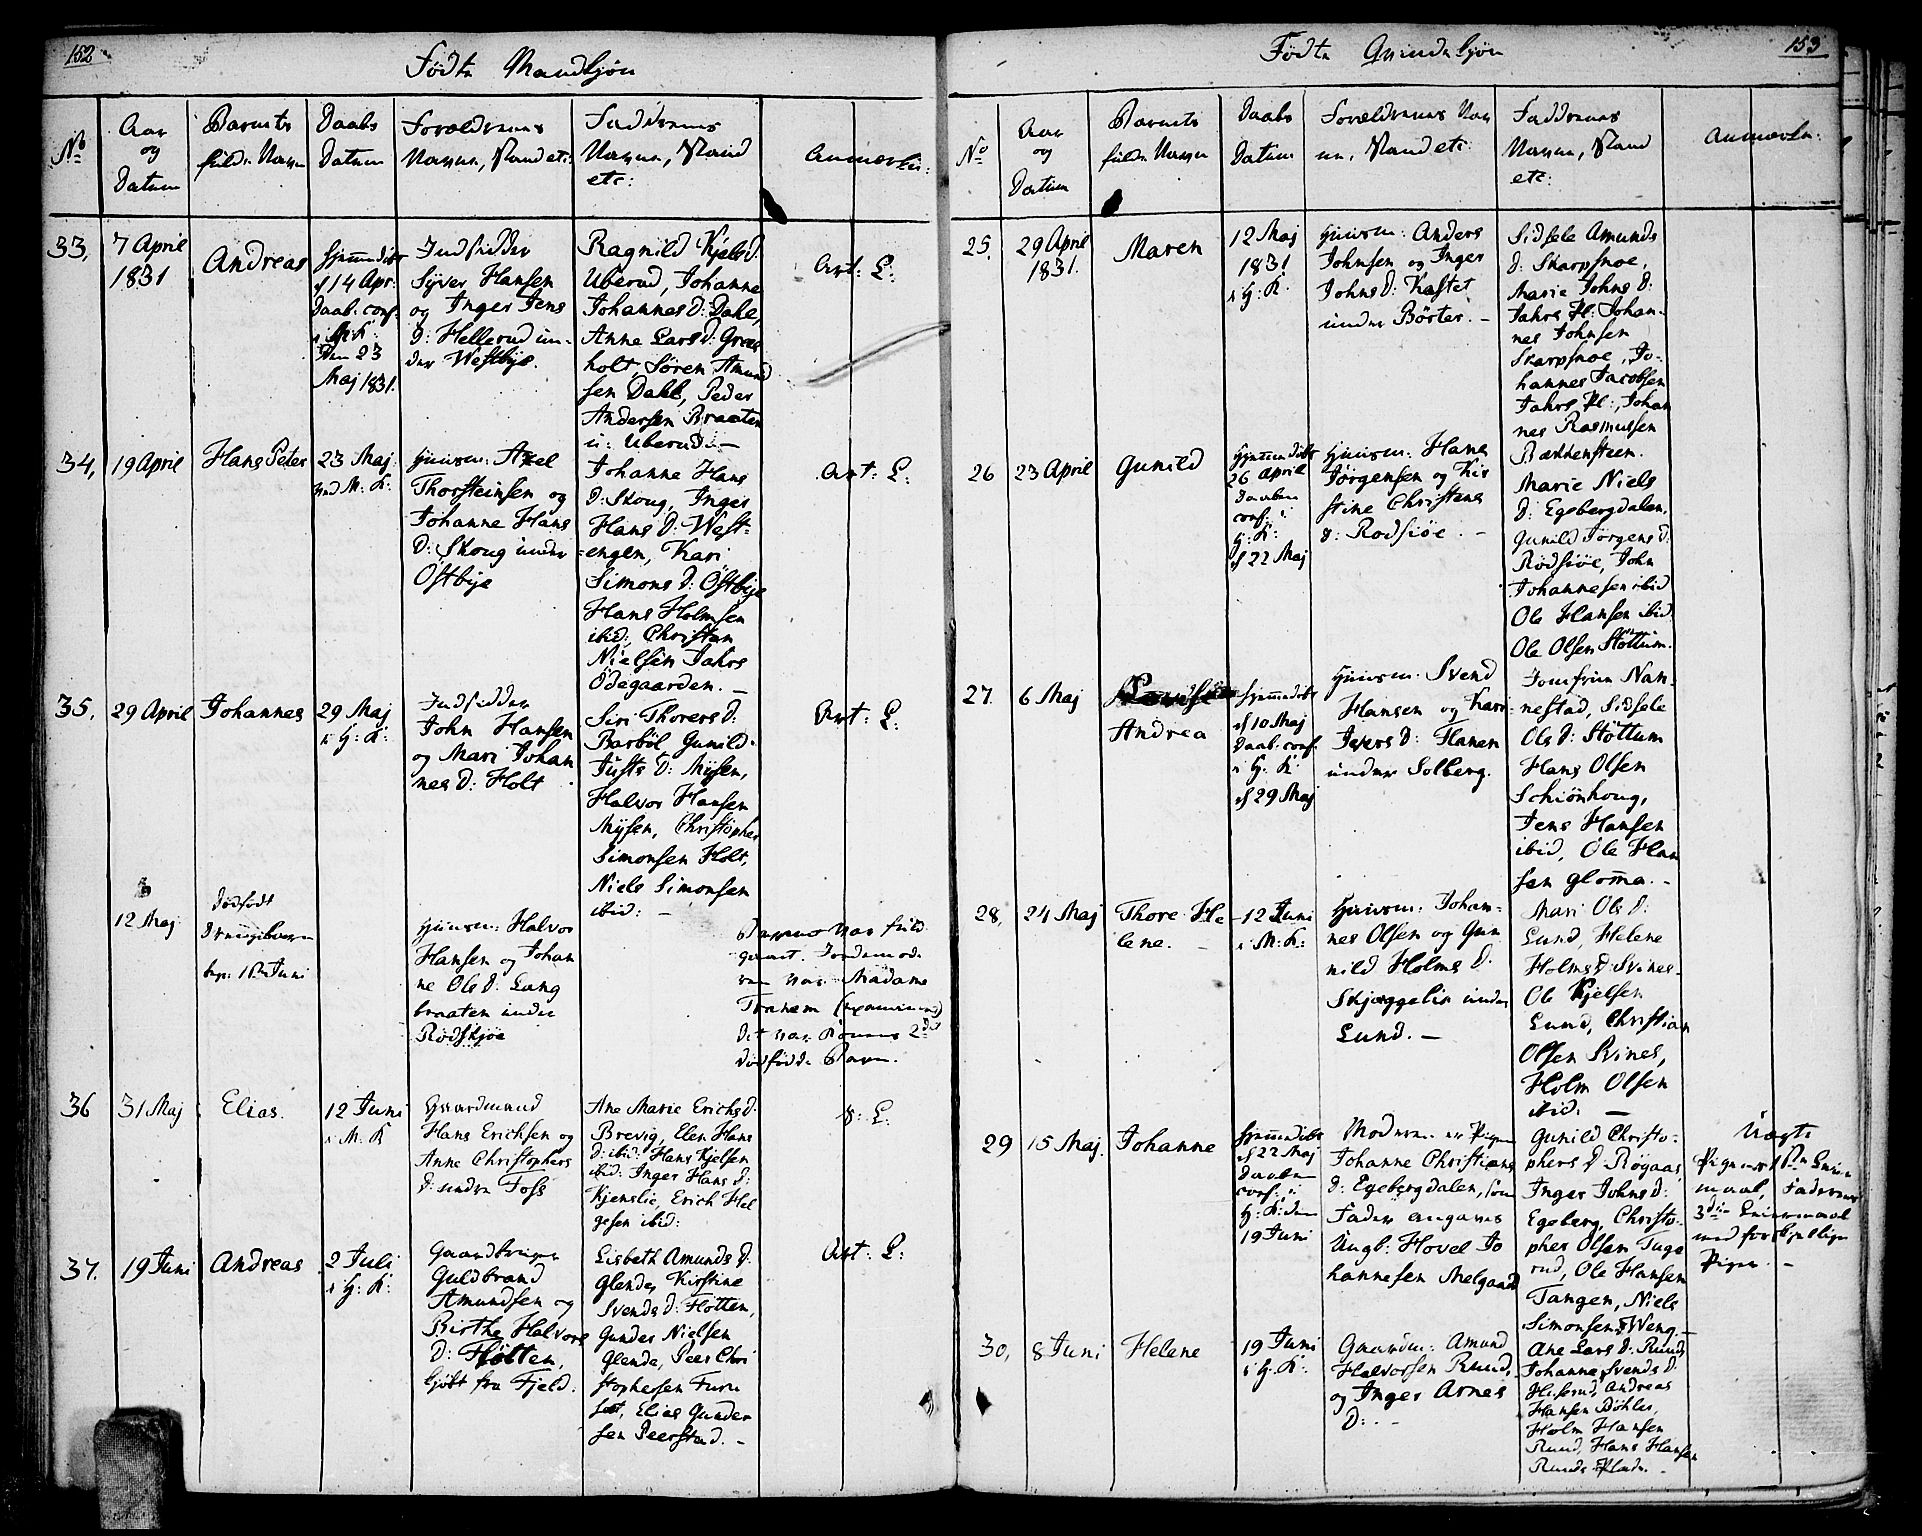 152
Fødte Mandkjøn
No
Aar
og
Datum
Barnets
fulde Navn
Daabs
Datum
Forældrenes
Navne, Stand etc:
Faddrenes
Navne, Stand
etc:
Anmærkn:
33,
7 April
1831
Andreas
Hjemmedøbt
d 14 Apr:
Daab. conf.
Den 23
Maj 1831.
Indsidder
Syver Hansen
og Inger Jens
D: Hellerud un-
der Westbye.
Ragnild Kjels d.
Uberud, Johanne
Johannes D: Dahl,
Anne Lars d: Grøn
holt, Søren Amund
sen Dahl, Peder
Andersen Braaten
u: Uberud. —
Art: L:
34,
19 April
Hans Peter
23 Maj
M: K:
Huusm: Axel
Thorsteinsen og
Johanne Hans
D: Skoug under
Østbye
Johanne Hans
D: Skoug, Inger
Hans D: West-
engen, Kari
Simons d: Østbye
Hans Holmsen
ibid:, Christian
Nielsen Jahrs
Ødegaarden. —
Art: L:
35,
29 April
Johannes
29 Maj
i H: K:
Indsidder
John Hansen
og Mari Johan
nes D: Holt
Siri Thorers D:
Barbøl, Gunild
Justs D: Mysen,
Halvor Hansen
Mysen, Christopher
Simonsen Holt,
Niels Simonsen
ibid: —
Art: L:
12 Maj
Dødfødt
Drengebarn
begr: 1ste Juni
Huusm: Halvor
Hansen og Johan
ne Ols D: Lang
braaten under
Rødskjøe
Barnet var fuld
baaret. Jordemode
ren var Madame
Tranem (examineret)
Det var Konens 2det
dødfødde Barn.
36
31 Maj
Elias.
12 Juni
i M: K
Gaardmand
Hans Erichsen og
Anne Christophers
D: søndre Foss
Ane Marie Erichs d.
Brevig, Elen Hans
D: ibid: Hans Kjelsen
ibid: Inger Hans d:
Kjenslie, Erich Hel
gesen ibid:
L:
37.
19 Juni
Andreas
2 Juli
i H: K:
Gaardbruger
Guldbrand
Amundsen og
Birthe Halvors
D: Høtten,
kjøbt fra Fjeld.
Lisbeth Amunds d.
Glende, Kirstine
Svends d: Høtten,
Gunder Nielsen
Glende, Peer Chri
stophersen Furu
sæt, Elias Gunder
sen Peerstad. —
Art: L:
153
Fødte Qvindekjøn
No
Aar
og
Datum
Barnets
fulde Navn
Daabs
Datum
Forældrenes Nav
ne, Stand etc:
Faddrenes
Navne, Stand
etc:
Anmærkn:
25.
29 April
1831.
Maren
12 Maj
1831
i H: K.
Huusm: Anders
Johnsen og Inger
Johns D: Kastet
under Børter. —
Sidsele Amunds
D: Skarpsnoe,
Marie Johns D:
Jahrs Pl: Johan-
nes Johnsen
Skarpsnoe, Jo-
hannes Jacobsen
Jahrs Pl:, Johan
nes Rasmussen
Bækkensteen.
26
23 April
Gunild
Hjemmedøbt
26 April
Daaben
conf: i
H: K:
d 22 Maj
Huusm: Hans
Jørgensen og Kir
stine Christens
D: Rødsiøe. —
Marie Niels
D: Egebergdalen,
Gunild Jørgens D:
Rødsiøe, John
Johannesen ibid
Ole Hansen ibid.
Ole Olsen Støttum.
27.
6 Maj
Andrea
Hjemmedøbt
d 10 Maj
Daab. conf.
i H: K:
d 29 Maj
Huusm: Svend
Hansen og Kari
Ivers D: Hanen
under Solberg.
Jomfrue Nan-
nestad, Sidsele
Ols D: Støttum
Hans Olsen
Schiønhoug,
Jens Hansen
ibid, Ole Han
sen Glomma. —
28,
24 Maj
Thore He
lene. —
12 Juni
i M: K:
Huusm: Johan-
nes Olsen og Gun
nild Holms D:
Skjæggelie under
Lund. —
Mari Ols D:
Lund, Helene
Holms D: Svines
Ole Kjelsen
Lund, Christian
Olsen Svines,
Holm Olsen
ibid. —
29
15 Maj.
Johanne
Hjemmedøbt
d 22 Maj
Daaben
conf: i
H: K: den
19 Juni
Moderen er Pigen
Johanne Christians
D: Egebergdalen, som
Fader angaves
Ungk: Hovel Jo
hannesen Melgaard
Gunild Christo-
phers D: Røgaas,
Inger Johns D:
Egeberg, Christo-
pher Olsen Tuge
rud, Ole Hansen
Tangen, Niels
Simonsen Weng.
Uægte
Pigens 1ste Leier
maal, Faderens
3die Leiermaal
med forskjellige
Piger. —
30,
8 Juni
Helene
19 Juni
i H: K:
Gaardm: Amund
Halvorsen Ruud,
og Inger Arnes
D: —
Ane Lars D: Ruud,
Johanne Svends D:
Andreas
Hansen Bøhler,
Holm Hansen
Ruud, Hans Hansen
Ruuds Plads. —